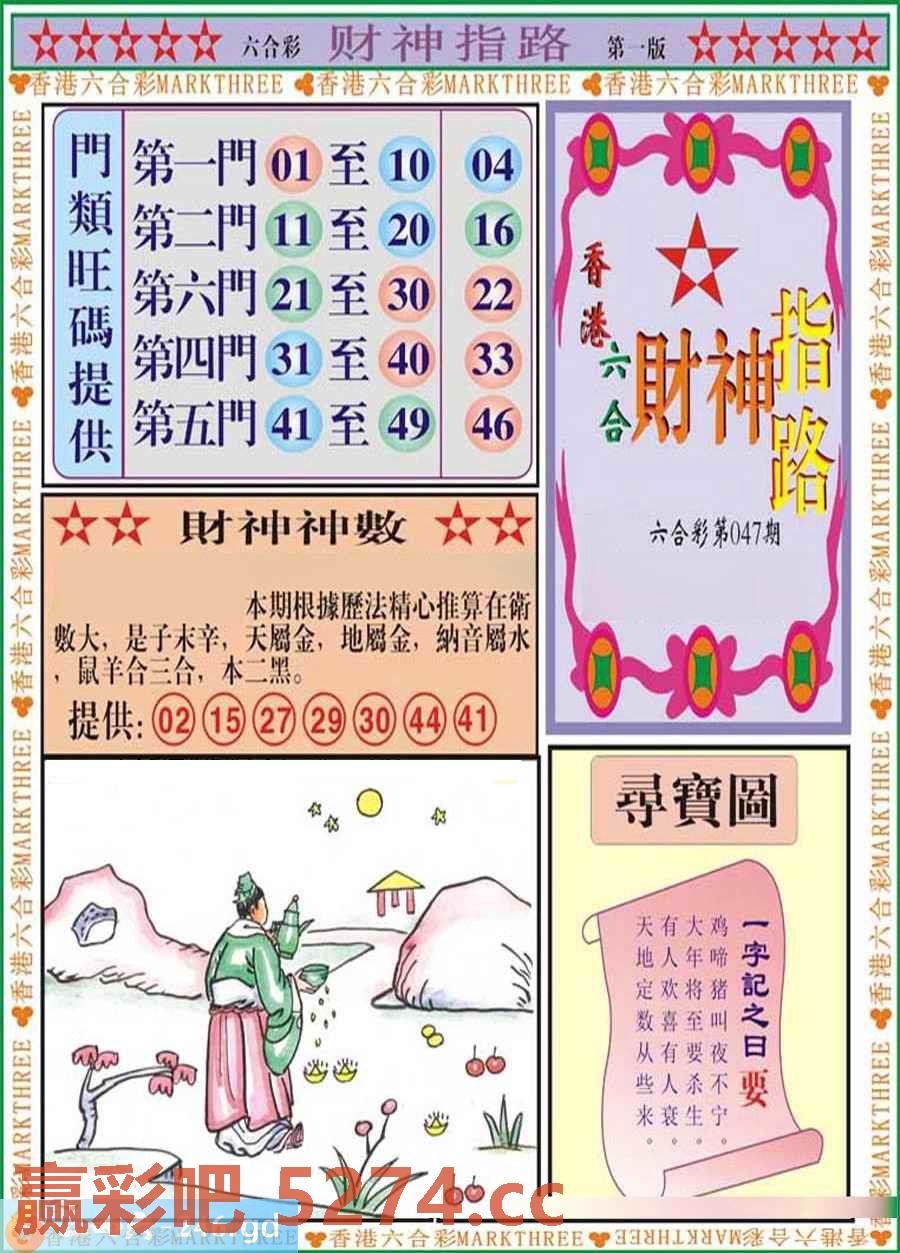 六合彩 财神指路 第一版
香港六合彩MARKTHREE 香港六合彩MARKTHREE 香港六合彩MARKTHREE
香港六合彩MARKTHREE
香港六合彩MARKTHREE
門類旺碼提供
第一門 01 至 10 04
第二門 11 至 20 16
第六門 21 至 30 22
第四門 31 至 40 33
第五門 41 至 49 46
香港六合
財神指路
六合彩第047期
財神神數
本期根據歷法精心推算在衛
數大，是子末辛，天屬金，地屬金，納音屬水
，鼠羊合三合，本二黑。
提供: 02 15 27 29 30 44 41
尋寶圖
一字記之曰 要
鸡啼猪叫夜不宁。
大年将至要杀生。
有人欢喜有人衰。
天地定数从些来。
赢彩吧 5274.cc
香港六合彩MARKTHREE 香港六合彩MARKTHREE